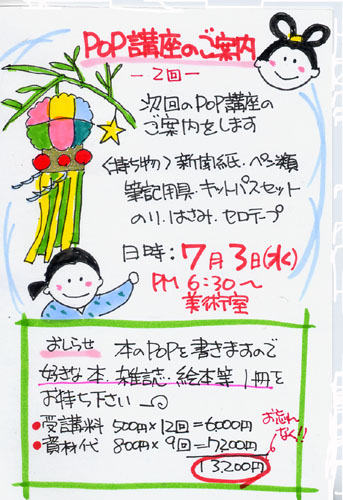 POP講座のご案内
―2回―
次回のPOP講座の
ご案内をします
〈持ち物〉新聞紙・ペン類
筆記用具・キットパスセット
のり・はさみ・セロテープ
日時:7月3日(水)
PM 6:30〜
美術室
おしらせ 本のPOPを書きますので
好きな本・雑誌・絵本等 1冊を
お持ち下さい
●受講料 500円×12回=6000円
●資材代 800円×9回=7200円
13,200円
お忘れ
なく!!